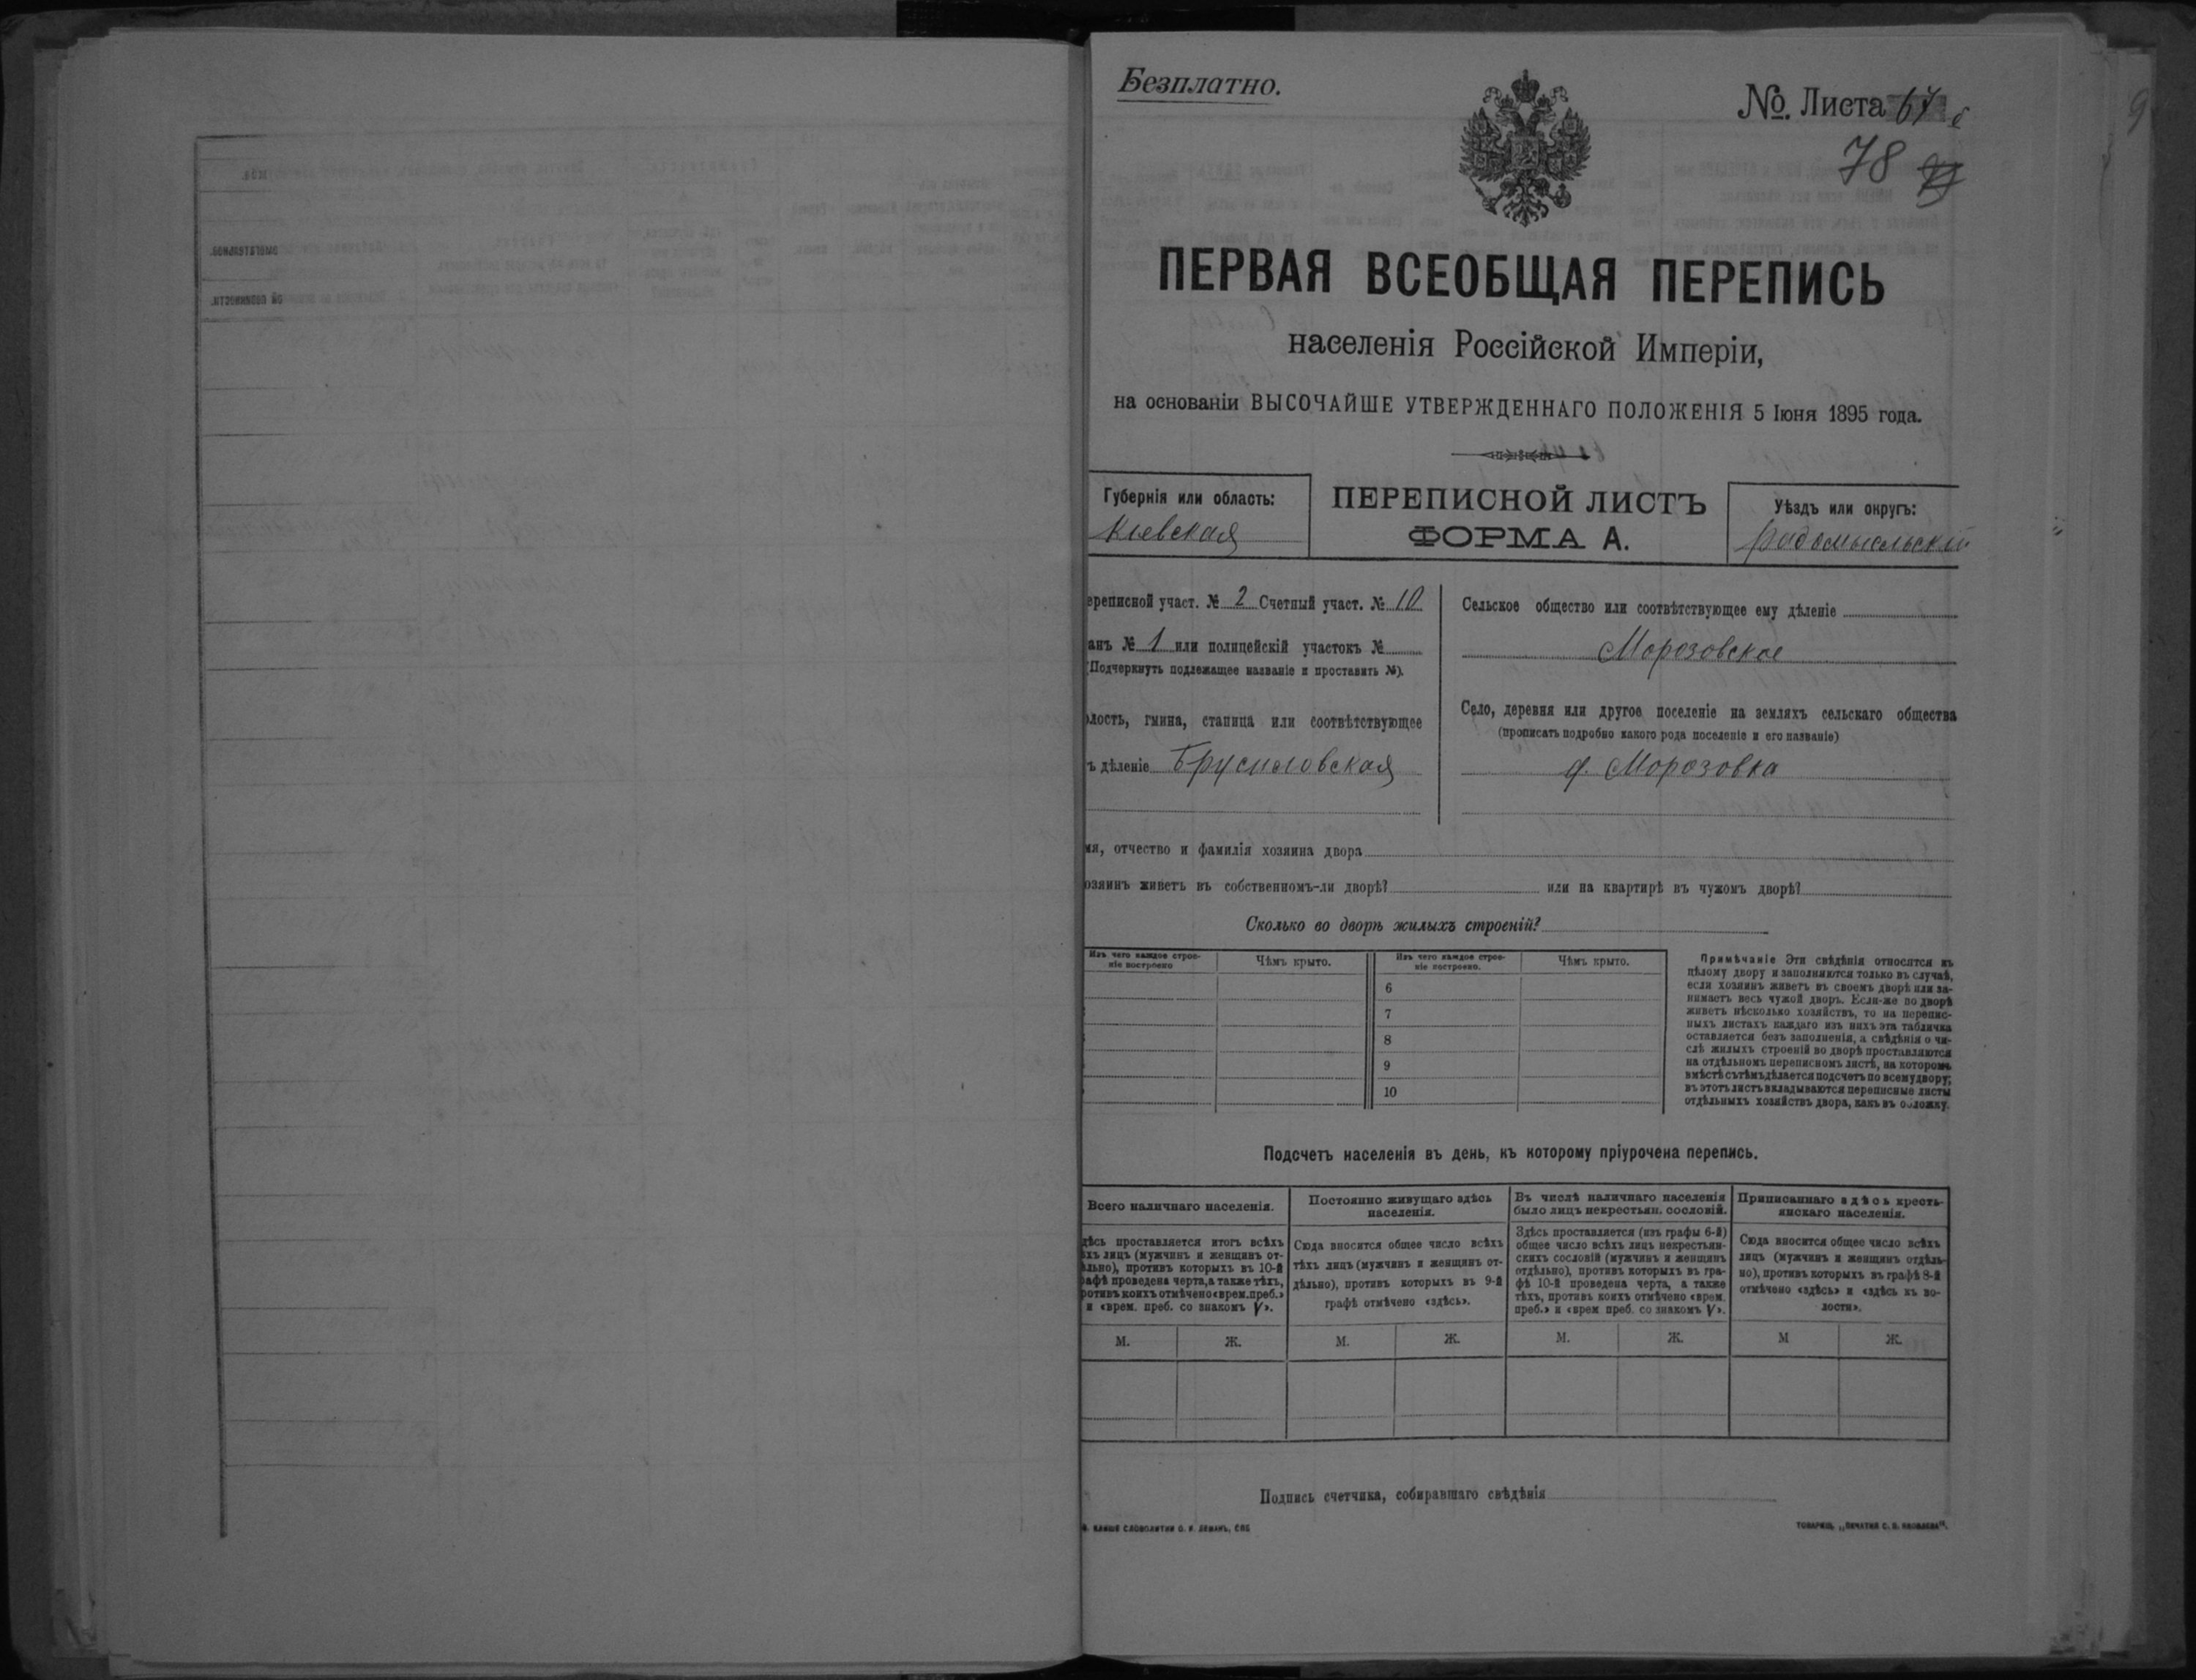 Безплатно.
№ Листа 67
78
ПЕРВАЯ ВСЕОБЩАЯ ПЕРЕПИСЬ
населенія Россійской Имперіи,
на основаніи ВЫСОЧАЙШЕ УТВЕРЖДЕННАГО ПОЛОЖЕНІЯ 5 Іюня 1895 года.
Губернія или область:
Кіевская
ПЕРЕПИСНОЙ ЛИСТЪ
ФОРМА А.
Уѣздъ или округъ:
Радомысльскій
ереписной участ. № 2 Счетный участ. № 10
анъ № 1 или полицейскій участокъ №
(Подчеркнуть подлежащее названіе и проставить №).
олость, гмина, станица или соотвѣтствующее
ъ дѣленіе Брусиловская
Сельское общество или соотвѣтствующее ему дѣленіе
Морозовское
Село, деревня или другое поселеніе на земляхъ сельскаго общества
(прописать подробно какого рода поселеніе и его названіе)
д. Морозовка
мя, отчество и фамилія хозяина двора
озяинъ живетъ въ собственномъ-ли дворѣ? или на квартирѣ въ чужомъ дворѣ?
Сколько во дворѣ жилыхъ строеній?
Изъ чего каждое строе-
ніе построено
Чѣмъ крыто.
Изъ чего каждое строе-
ніе построено.
Чѣмъ крыто.
6
7
8
9
10
Примѣчаніе Эти свѣдѣнія относятся къ
цѣлому двору и заполняются только въ случаѣ,
если хозяинъ живетъ въ своемъ дворѣ или за-
нимаетъ весь чужой дворъ. Если-же во дворѣ
живетъ нѣсколько хозяйствъ, то на перепис-
ныхъ листахъ каждаго изъ нихъ эта табличка
оставляется безъ заполненія, а свѣдѣнія о чи-
слѣ жилыхъ строеній во дворѣ проставляются
на отдѣльномъ переписномъ листѣ, на которомъ
вмѣстѣ съ тѣмъ дѣлается подсчетъ по всему двору;
въ этотъ листъ вкладываются переписные листы
отдѣльныхъ хозяйствъ двора, какъ въ обложку.
Подсчетъ населенія въ день, къ которому пріурочена перепись.
Всего наличнаго населенія.
дѣсь проставляется итогъ всѣхъ
ѣхъ лицъ (мужчинъ и женщинъ от-
ѣльно), противъ которыхъ въ 10-й
рафѣ проведена черта, а также тѣхъ,
ротивъ коихъ отмѣчено «врем. преб.»
и «врем. преб. со знакомъ V».
Постоянно живущаго здѣсь
населенія.
Сюда вносится общее число всѣхъ
тѣхъ лицъ (мужчинъ и женщинъ от-
дѣльно), противъ которыхъ въ 9-й
графѣ отмѣчено «здѣсь».
Въ числѣ наличнаго населенія
было лицъ некрестьян. сословій.
Здѣсь проставляется (изъ графы 6-й)
общее число всѣхъ лицъ некрестьян-
скихъ сословій (мужчинъ и женщинъ
отдѣльно), противъ которыхъ въ гра-
фѣ 10-й проведена черта, а также
тѣхъ, противъ коихъ отмѣчено «врем.
преб.» и «врем преб. со знакомъ V».
Приписаннаго здѣсь кресть-
янскаго населенія.
Сюда вносится общее число всѣхъ
лицъ (мужчинъ и женщинъ отдѣль-
но), противъ которыхъ въ графѣ 8-й
отмѣчено «здѣсь» и «здѣсь къ во-
лости».
М. Ж. М. Ж. М. Ж. М Ж.
Подпись счетчика, собиравшаго свѣдѣнія
КЛИШЕ СЛОВОЛИТНИ О. И. ЛЕМАНЪ, СПБ
ТОВАРИЩ. „ПЕЧАТНЯ С. П. ЯКОВЛЕВА“.